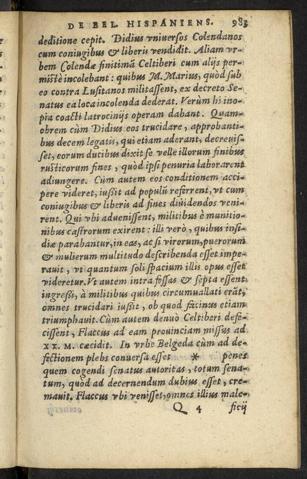 DE BEL. HISPANIENS. 983
deditione cepit. Didius vniuersos Colendanos
cum coniugibus & liberis vendidit. Aliam vr-
bem Colendæ finitimã Celtiberi cum alijs per-
mistè incolebant: quibus M. Marius, quòd sub
eo contra Lusitanos militassent, ex decreto Se-
natus ea loca incolenda dederat. Verùm hi ino-
pia coacti latrocinijs operam dabant. Quam-
obrem cùm Didius eos trucidare, approbanti-
bus decem legatis, qui etiam aderant, decreuis-
set, eorum ducibus dixit se velle illorum finibus
rusticorum fines, quòd ipsi penuria laborarent
adiungere. Cùm autem eos conditionem acci-
pere videret, iussit ad populũ referrent, vt cum
coniugibus & liberis ad fines diuidendos veni-
rent. Qui vbi aduenissent, militibus è munitio-
nibus castrorum exirent: illi verò, quibus insi-
diæ parabantur, in eas, ac si virorum, puerorum
& mulierum multitudo describenda esset impe-
rauit, vt quantum soli spacium illis opus esset
videretur. Vt autem intra fossas & septa essent
ingressi, à militibus quibus circumuallati erãt,
omnes trucidari iussit, ob quod facinus etiam
triumphauit. Cùm autem denuò Celtiberi defe-
cissent, Flaccus ad eam prouinciam missus ad
XX. M. cæcidit. In vrbe Belgeda cùm ad de-
fectionem plebs conuersa esset * penes
quem cogendi senatus autoritas, totum sena-
tum, quòd ad decernendum dubius esset, cre-
mauit. Flaccus vbi venisset, omnes illius male-
Q 4 ficij